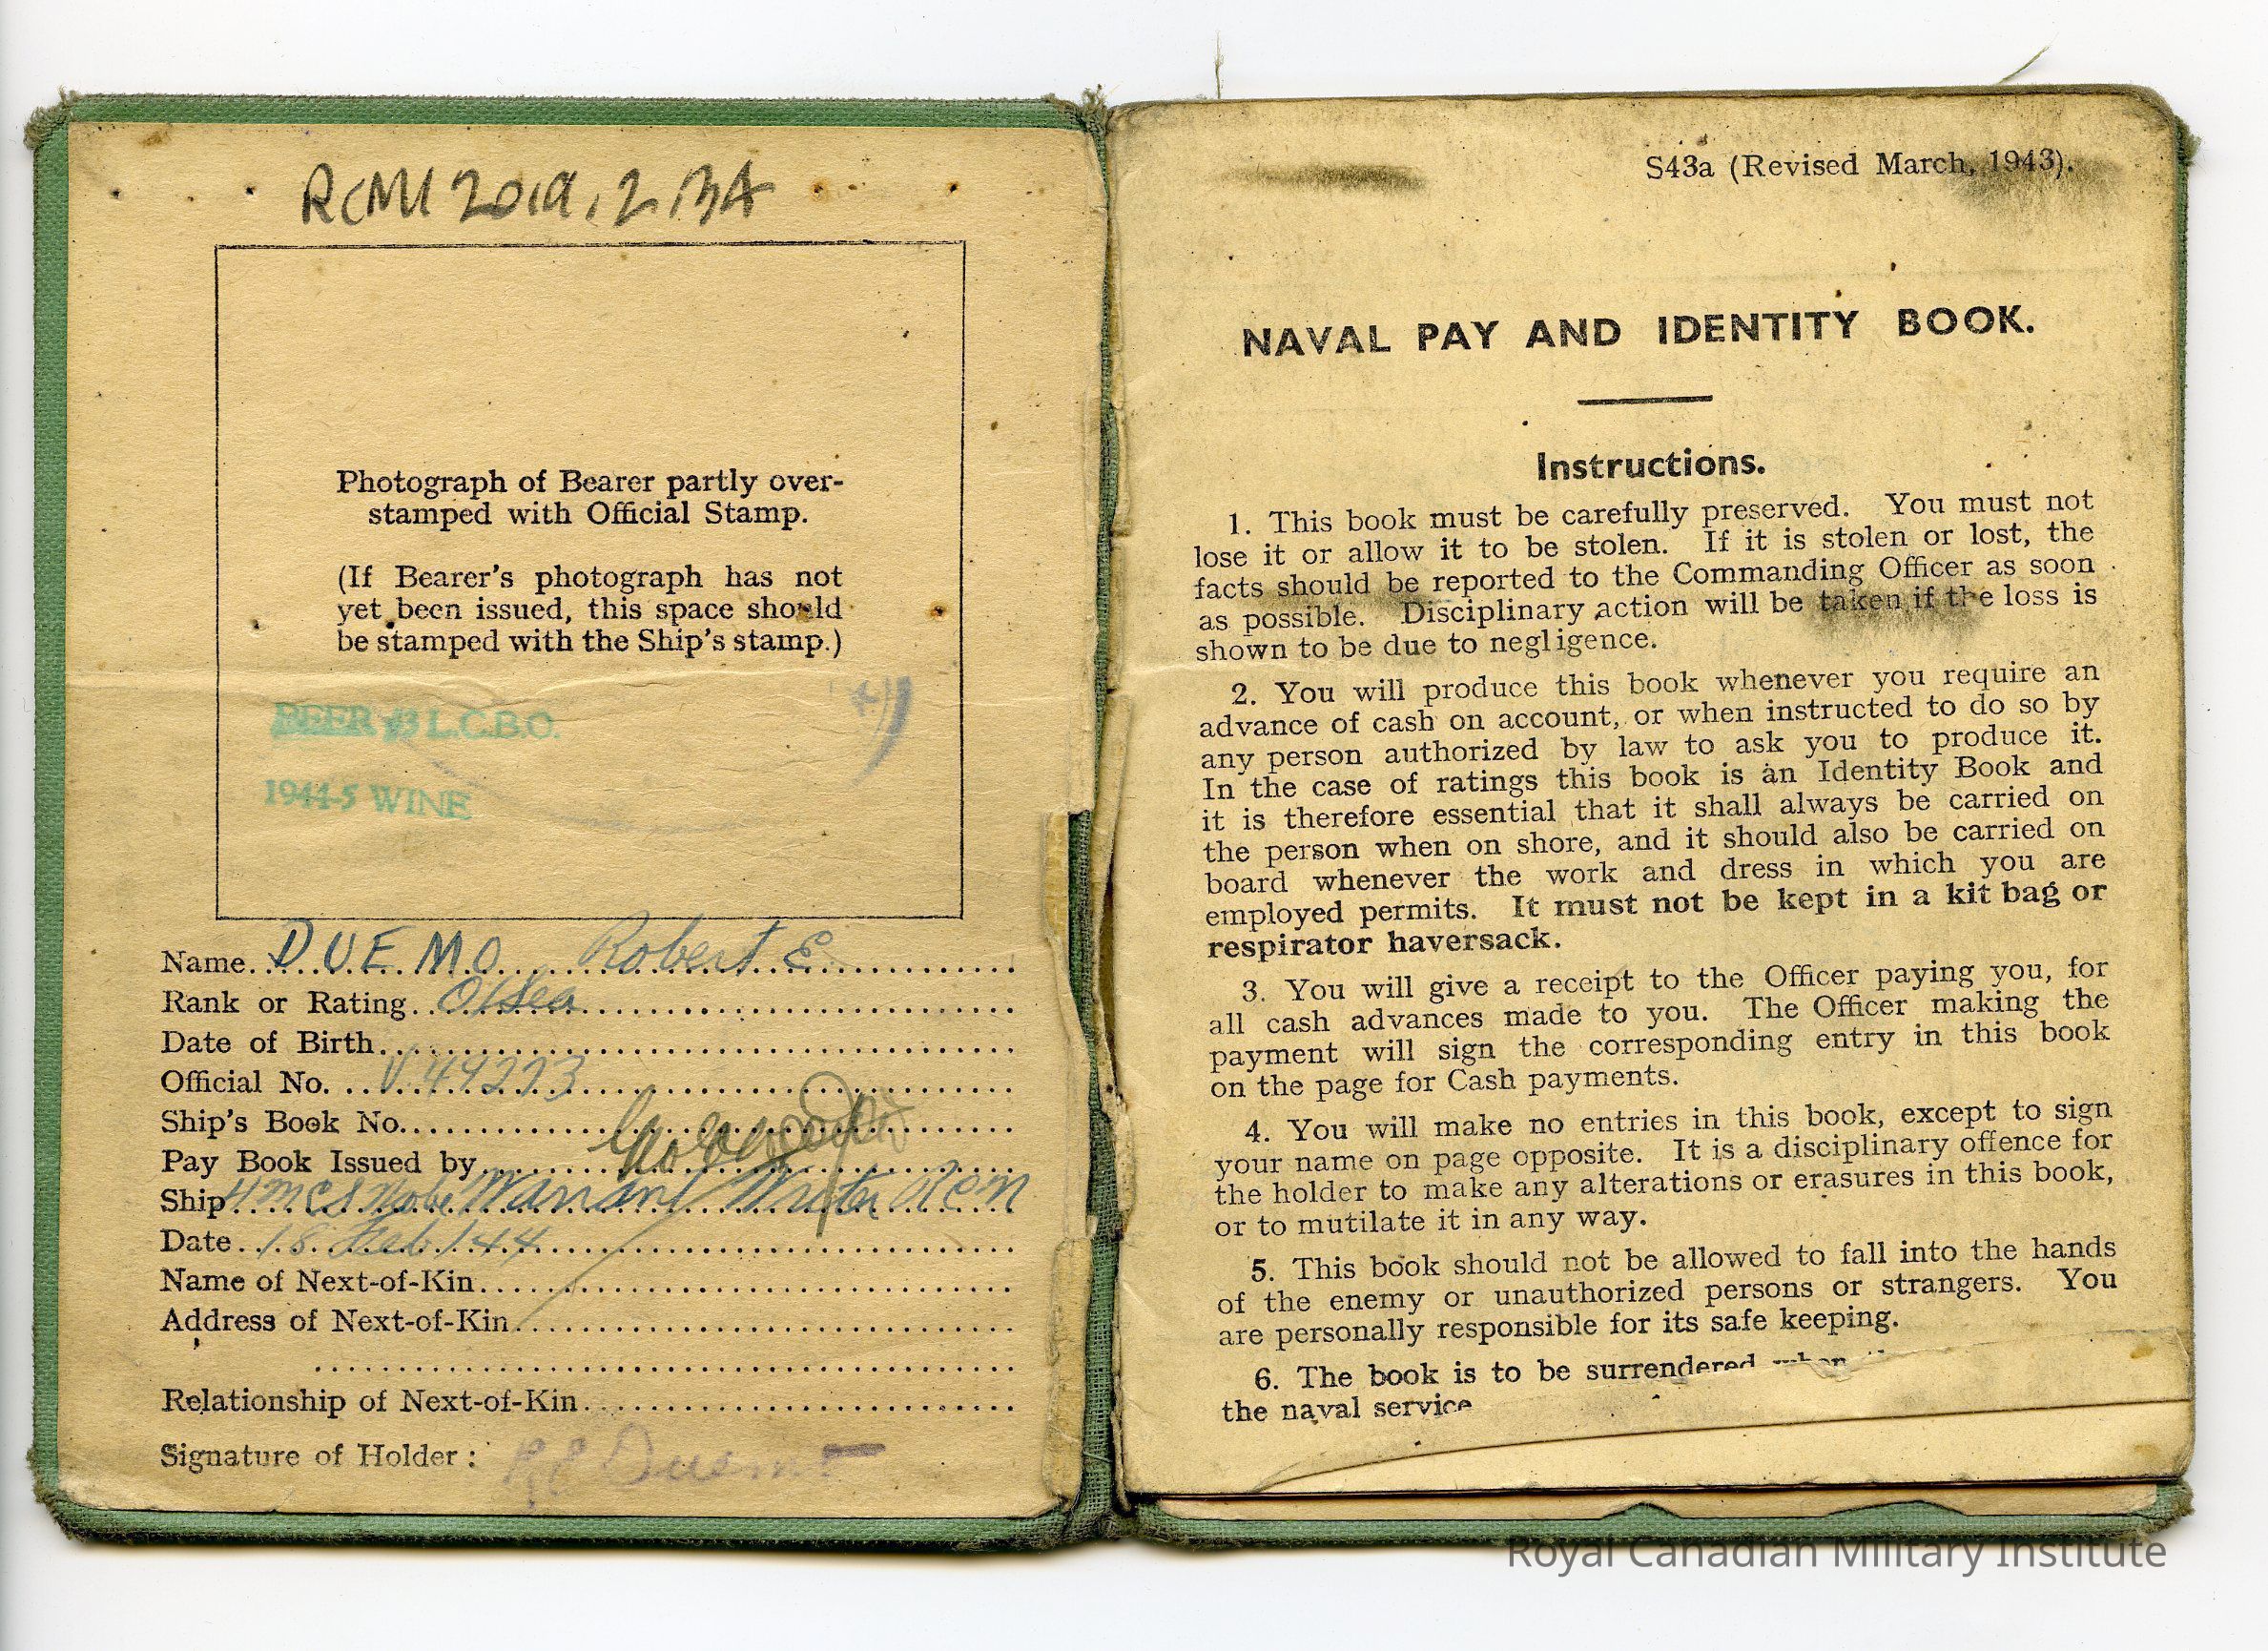 Photograph of Bearer partly over-
stamped with Official Stamp.
(If Bearer's photograph has not
yet been issued, this space should
be stamped with the Ship's stamp.)
BEER 43 L.C.B.O.
1944-5 WINE
Name DUEMO Robert E.
Rank or Rating O/Sea
Date of Birth
Official No. V 44273
Ship's Book No.
Pay Book Issued by
Ship HMCS Warrant Writer RCN
Date 18 Feb/44
Name of Next-of-Kin
Address of Next-of-Kin
Relationship of Next-of-Kin
Signature of Holder: R E Duemo
S43a (Revised March, 1943).
NAVAL PAY AND IDENTITY BOOK.
Instructions.
1. This book must be carefully preserved. You must not
lose it or allow it to be stolen. If it is stolen or lost, the
facts should be reported to the Commanding Officer as soon
as possible. Disciplinary action will be taken if the loss is
shown to be due to negligence.
2. You will produce this book whenever you require an
advance of cash on account, or when instructed to do so by
any person authorized by law to ask you to produce it.
In the case of ratings this book is an Identity Book and
it is therefore essential that it shall always be carried on
the person when on shore, and it should also be carried on
board whenever the work and dress in which you are
employed permits. It must not be kept in a kit bag or
respirator haversack.
3. You will give a receipt to the Officer paying you, for
all cash advances made to you. The Officer making the
payment will sign the corresponding entry in this book
on the page for Cash payments.
4. You will make no entries in this book, except to sign
your name on page opposite. It is a disciplinary offence for
the holder to make any alterations or erasures in this book,
or to mutilate it in any way.
5. This book should not be allowed to fall into the hands
of the enemy or unauthorized persons or strangers. You
are personally responsible for its safe keeping.
6. The book is to be surrendered when
the naval service
Royal Canadian Military Institute